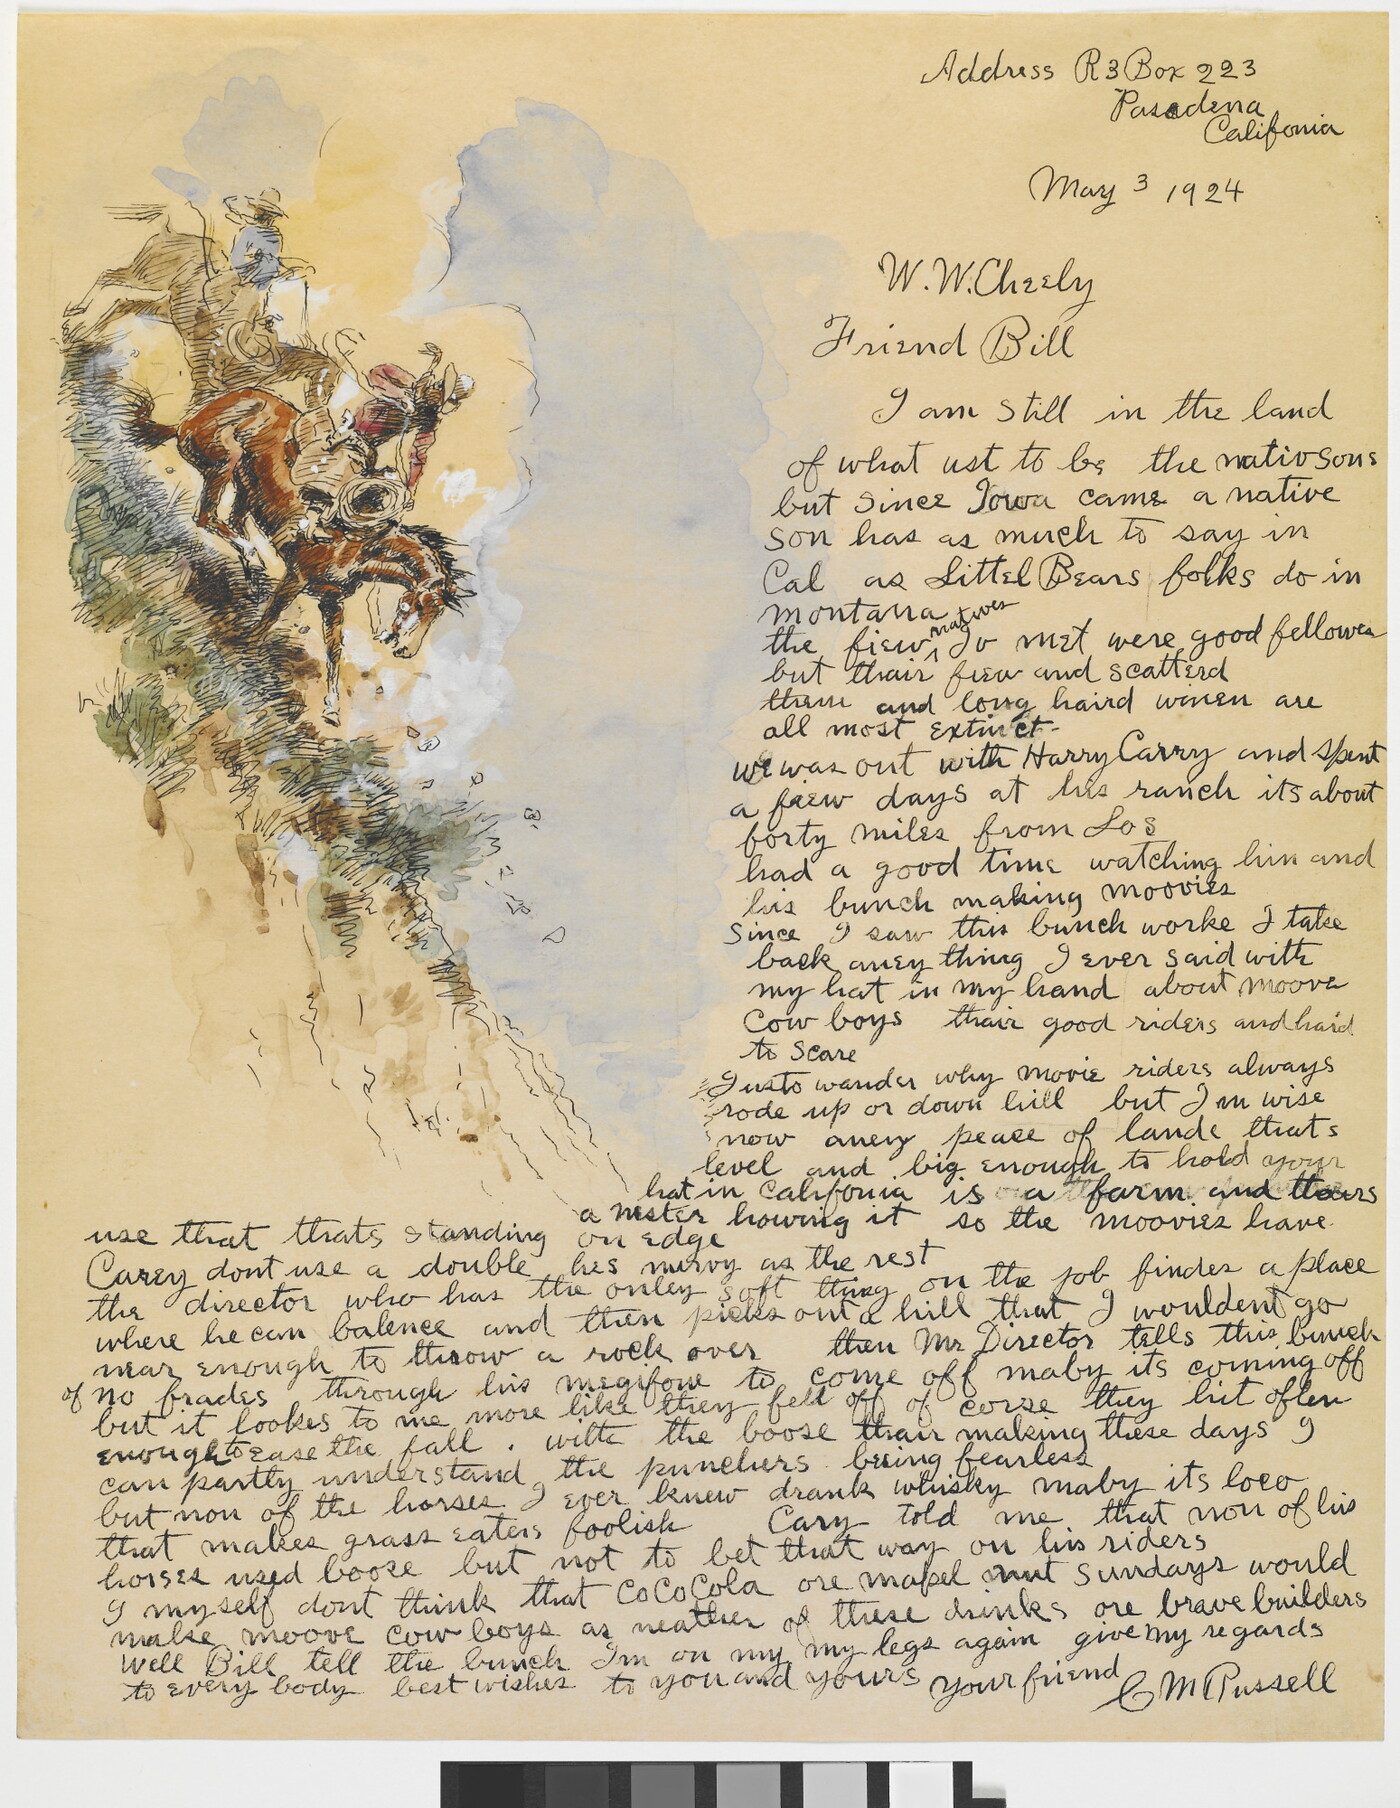 Address R3 Box 223
Pasadena
Califonia
May 3 1924
W.W.Cheely
Friend Bill
I am still in the land
of what ust to be the nativ sons
but since Iowa came a native
son has as much to say in
Cal as Littel Bears folks do in
montana
natives
the fiew I v met were good fellowes
but thair fiew and scatterd
them and long haird wimen are
all most extinct-
we was out with Harry Carry and spent
a fiew days at his ranch its about
forty miles from Los
had a good time watching him and
his bunch making moovies
since I saw this bunch worke I take
back aney thing I ever said with
my hat in my hand about moove
Cow boys thair good riders and hard
to scare
I usto wander why movie riders always
rode up or down hill but I m wise
now aney peace of lande thats
level and big enough to hold your
hat in califonia is a farm and thars
a nester howing it so the moovies have
use that thats standing on edge
Carey dont use a double hes nurvy as the rest
the director who has the onley soft thing on the job findes a place
where he can balence and then picks out a hill that I wouldent go
near enough to throw a rock over then Mr Director tells this bunch
of no frades through his megifone to come off maby its coming off
but it lookes to me more like they fell off of corse they hit often
enough to ease the fall. with the boose thair making these days I
can partly understand the punchers being fearless
but non of the horses I ever knew drank whisky maby its loco
that makes grass eaters foolish Cary told me that non of his
horses used boose but not to bet that way on his riders
I myself dont think that CoCoCola ore mapel nut sundays would
make moove cow boys as neather of these drinks ore brave builders
well Bill tell the bunch Im on my my legs again give my regards
to every body best wishes to you and yours your friend
C M Russell